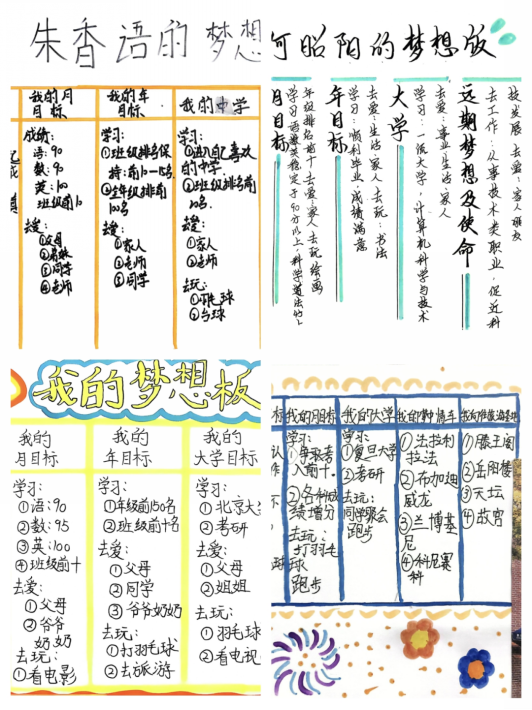 朱香语的梦想
我的月
目标
成绩:
语:90
数:90
英:100
班级前10
去爱:
①父母
③同学
④老师
我的年
目标
学习:
①班级排名保
持:前10-15名
②全年级排前
100名
去爱:
①家人
②老师
③同学
我的中学
学习:
①进入自己喜欢
的中学
②班级排名前
10名
去爱:
①家人
②老师
去玩:
①羽毛球
②台球
何昭阳的梦想版
技发展 去爱:家人 朋友
去工作:从事技术类职业,促近科
远期梦想及使命
去爱:事业 生活 家人
学习:一流大学,计算机科学与技术
大学
去爱:生活 家人 去玩:书法
学习:顺利毕业,成绩满意
年目标
年级排名前十 去爱:家人 去玩 绘画
学习 语数英稳定于90分以上,科学道法95上
月目标
我的梦想板
我的
月目标
学习:
①语:90
②数:95
③英:100
④班级前十
去爱:
①父母
②爷爷
奶奶
去玩:
①看电影
我的
年目标
学习:
①年级前150名
②班级前十名
去爱:
①父母
②同学
③爷爷奶奶
去玩:
①打羽毛球
②去旅游
我的
大学目标
学习:
①北京大
②考研
去爱:
①父母
②姐姐
去玩:
①羽毛球
②看电视
标
我的月目标
学习:
①争取考
入前十.
②各科成
绩增分
去玩:
打羽毛
球
跑步
我的大学
学习:
①复旦大学
②考研
去玩:
同学聚会
跑步
①法拉利
拉法
②布加迪
威龙
③兰博基
尼
④科尼赛
科
①滕王阁
②岳阳楼
③天坛
④故宫